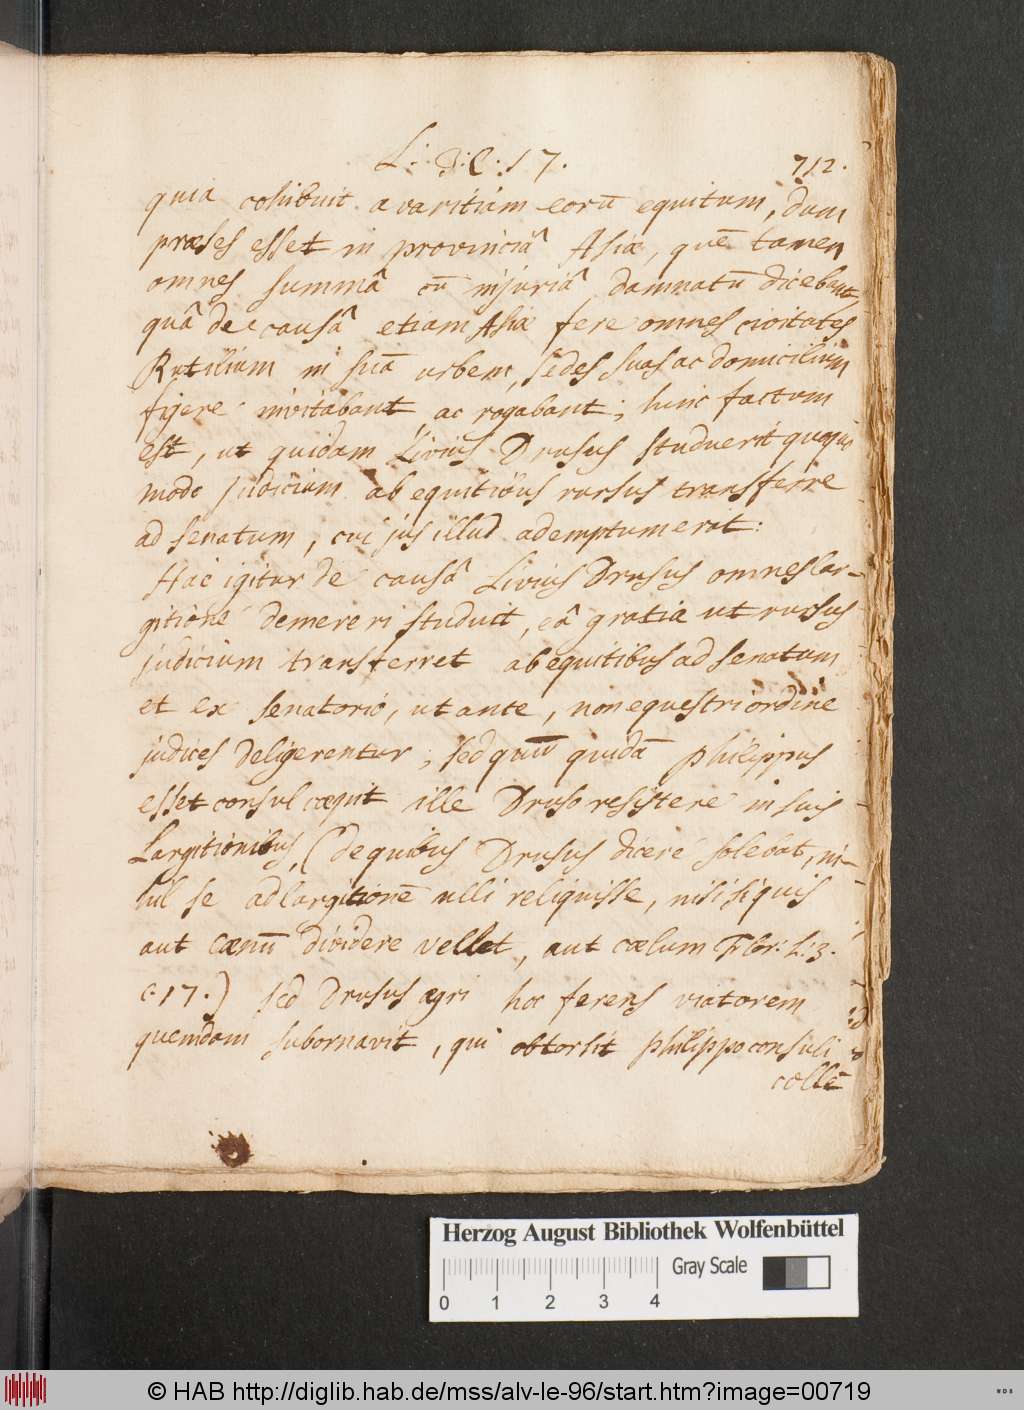 L: 3: C: 17. 712.
quia cohibuit avaritiam eorū equitum, dum
præses esset in provinciâ Asiæ, quē tamen
omnes summâ cū injuriâ damnatū dicebant,
quâ de causâ etiam Asiæ fere omnes civitates
Rutilium in suā urbem, sedes suas ac domicilium
figere invitabant ac rogabant; hinc factum
est, ut quidam Livius Drusus studuerit quoquo
modo judicium ab equitibus rursus transferre
ad senatum, cui jus illud ademptum erat:
Hac igitur de causâ Livius Drusus omnes lar-
gitione demereri studuit, eâ gratia ut rursus
judicium transferret ab equitibus ad senatum
et ex senatorio, ut ante, non equestri ordine
judices deligerentur; sed quum quidā Philippus
esset consul cœpit ille Druso resistere in suis
Largitionibus, (de quibus Drusus dicere solebat, ni-
hil se ad largitionē ulli reliquisse, nisi si quis
aut cœnū dividere vellet, aut cœlum Flor: L: 3.
c. 17.) sed Drusus ægri hoc ferens viatorem
quemdam subornavit, qui obtorsit Philippo consuli
collē
Herzog August Bibliothek Wolfenbüttel
Gray Scale
0 1 2 3 4
© HAB http://diglib.hab.de/mss/alv-le-96/start.htm?image=00719